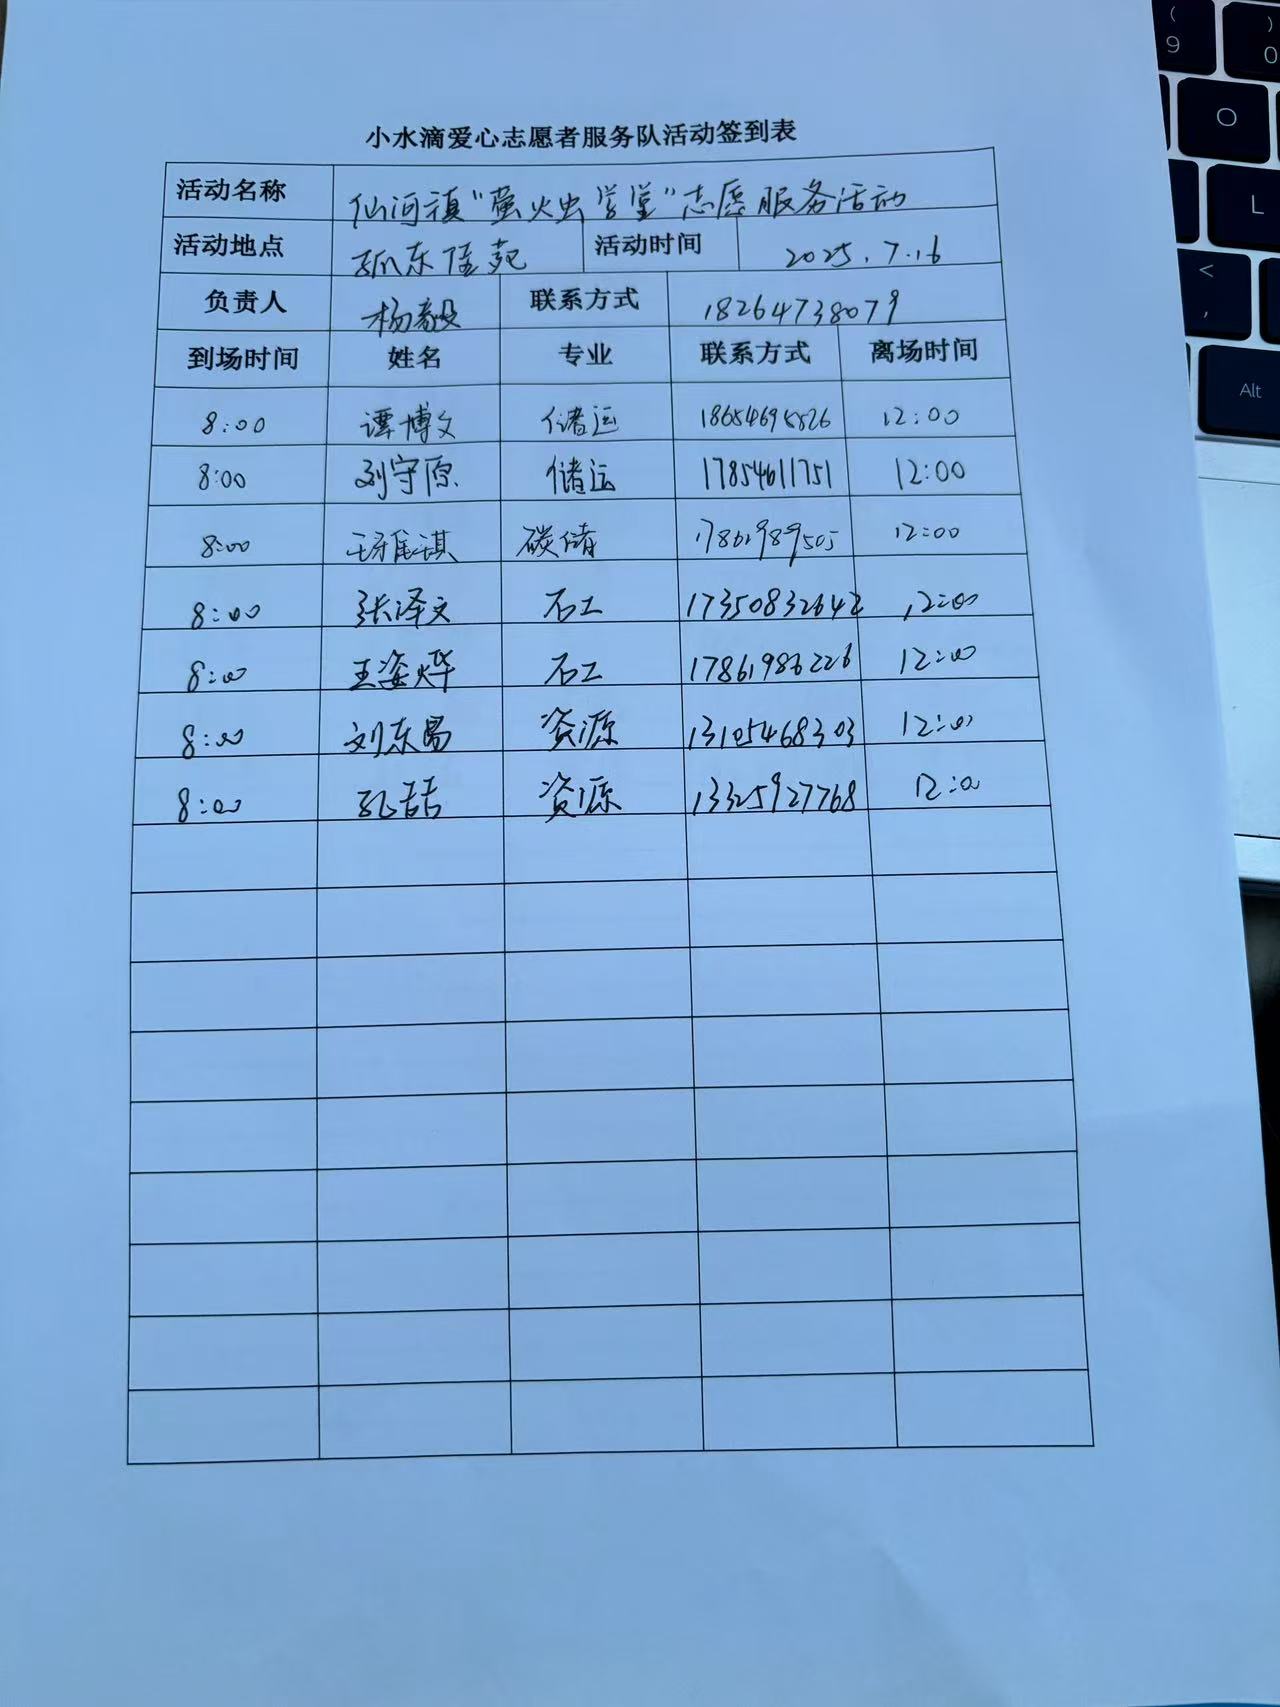 小水滴爱心志愿者服务队活动签到表
活动名称 仙河镇"萤火虫学堂"志愿服务活动
活动地点 孤东佳苑 活动时间 2025.7.16
负责人 杨毅 联系方式 18264738079
到场时间 姓名 专业 联系方式 离场时间
8:00 谭博文 储运 12:00
8:00 刘守原 储运 17854611751 12:00
8:00 碳储 17861989505 12:00
8:00 张泽文 石工 17350832642 12:00
8:00 王姿烨 石工 17861986226 12:00
8:00 刘东昌 资源 13105468303 12:00
8:00 孔喆 资源 13325927768 12:00
( 9
) 0
O
L
< ,
Alt